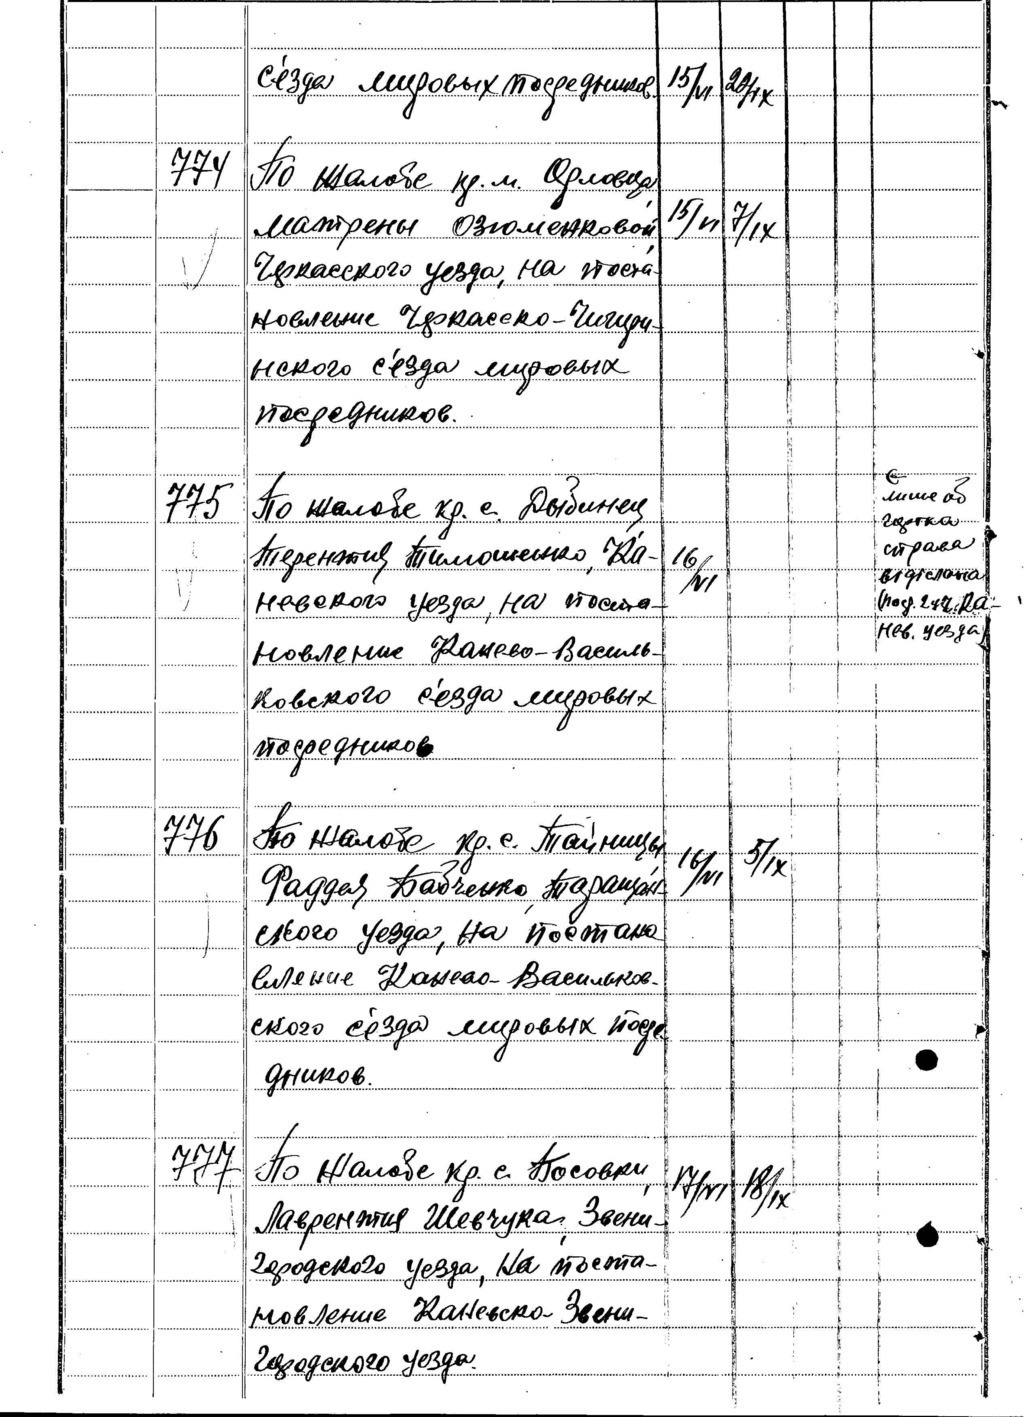 сʼезда мировых посредников 15/VI 20/IX
774 По жалобе кр. м. Орловца
Матрены Озюменковой, 15/VI 7/IX
Черкасского уезда, на поста-
новление Черкасско-Чигири-
нского сʼезда мировых
посредников.
775 По жалобе кр. с. Дыбинец
Терентия Тимошенко, Ка- 16/VI
невского уезда, на поста-
новление Канево-Василь-
ковского сʼезда мировых
посредников
Є
лише об
гортка
справа
відіслана
Ка-
Нев. уезда)
776 По жалобе кр. с. Тайницы
Фаддея Бабченко, Таращан 16/VI 5/IX
ского уезда, на постано
вление Канево-Васильков-
ского сʼезда мировых посре
дников.
777 По жалобе кр. с. Посовки,
Лаврентия Шевчука, Звени- 17/VI 18/IX
городского уезда, на поста-
новление Каневско-Звени-
городского уезда.